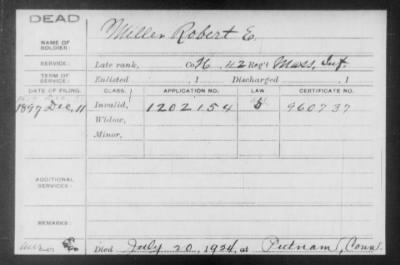 DEAD
NAME OF SOLDIER: Miller Robert E.
SERVICE: Late rank, Co. K, 42 Reg't Mass. Inf.
TERM OF SERVICE: Enlisted , 1 Discharged , 1
DATE OF FILING. CLASS. APPLICATION NO. LAW CERTIFICATE NO.
1897 Dec, 11 Invalid, 1202154 960737
Widow,
Minor,
ADDITIONAL SERVICES:
REMARKS:
Died July 20, 1924, at Putnam, Conn.